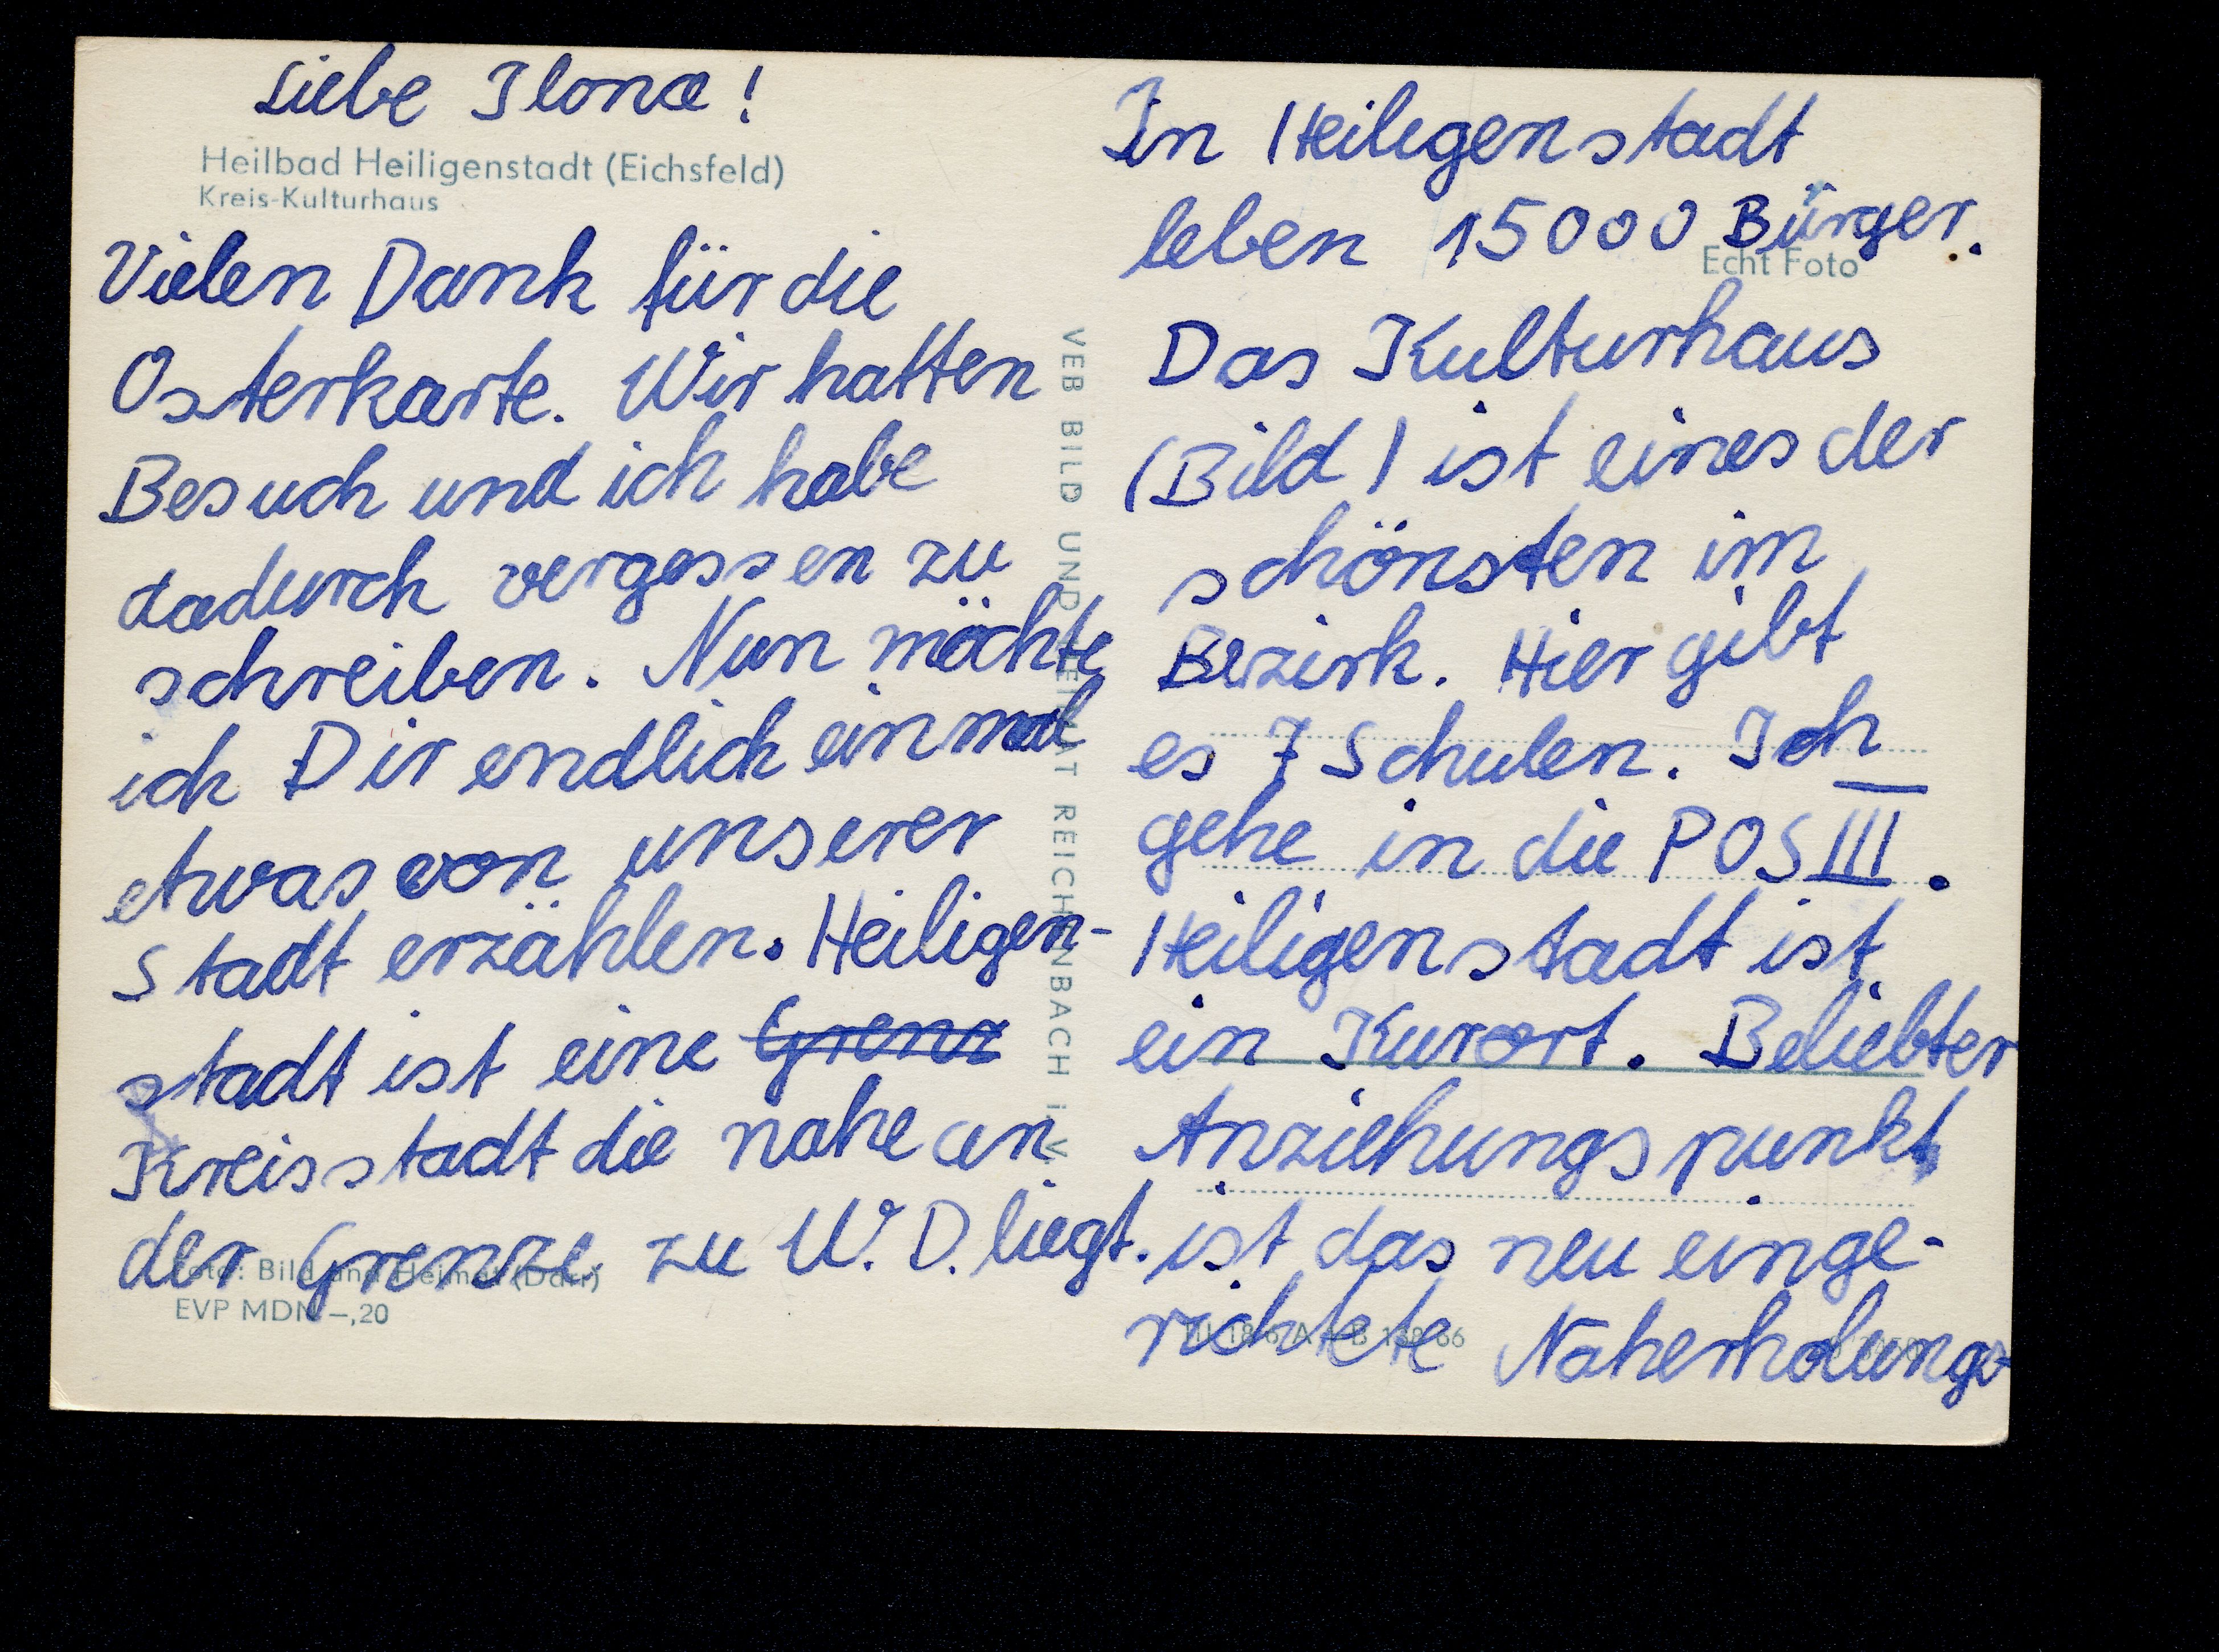 Liebe Ilona!
Heilbad Heiligenstadt (Eichsfeld)
Kreis-Kulturhaus
Vielen Dank für die
Osterkarte. Wir hatten
Besuch und ich habe
dadurch vergessen zu
schreiben. Nun möchte
ich Dir endlich einmal
etwas von unserer
Stadt erzählen. Heiligen-
stadt ist eine Grenz
Kreisstadt die nahe an
der Grenze zu W. D. liegt.
Foto: Bild und Heimat (Darr)
EVP MDN –,20
VEB BILD UND HEIMAT REICHENBACH I. V.
In Heiligenstadt
leben 15000 Bürger.
Echt Foto
Das Kulturhaus
(Bild) ist eines der
schönsten im
Bezirk. Hier gibt
es 7 Schulen. Ich
gehe in die POS III.
Heiligenstadt ist
ein Kurort. Beliebter
Anziehungspunkt
ist das neu einge-
richtete Naherholungs-